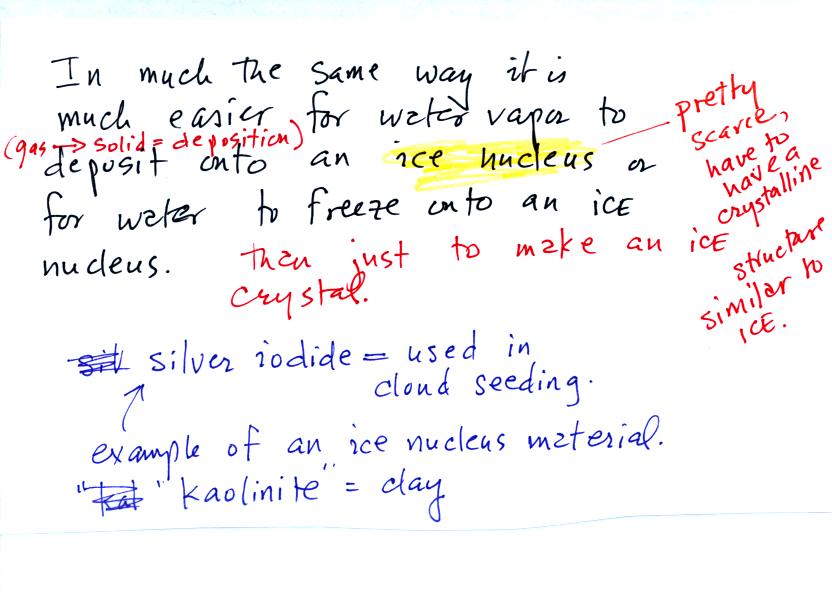 In much the same way it is
much easier for water vapor to
(gas → solid = deposition)
deposit onto an ice nucleus or
for water to freeze onto an ice
nucleus. than just to make an ice
crystal.
pretty
scarce,
have to
have a
crystalline
structure
similar to
ice.
sil silver iodide = used in
cloud seeding.
example of an ice nucleus material.
"kal "kaolinite" = clay